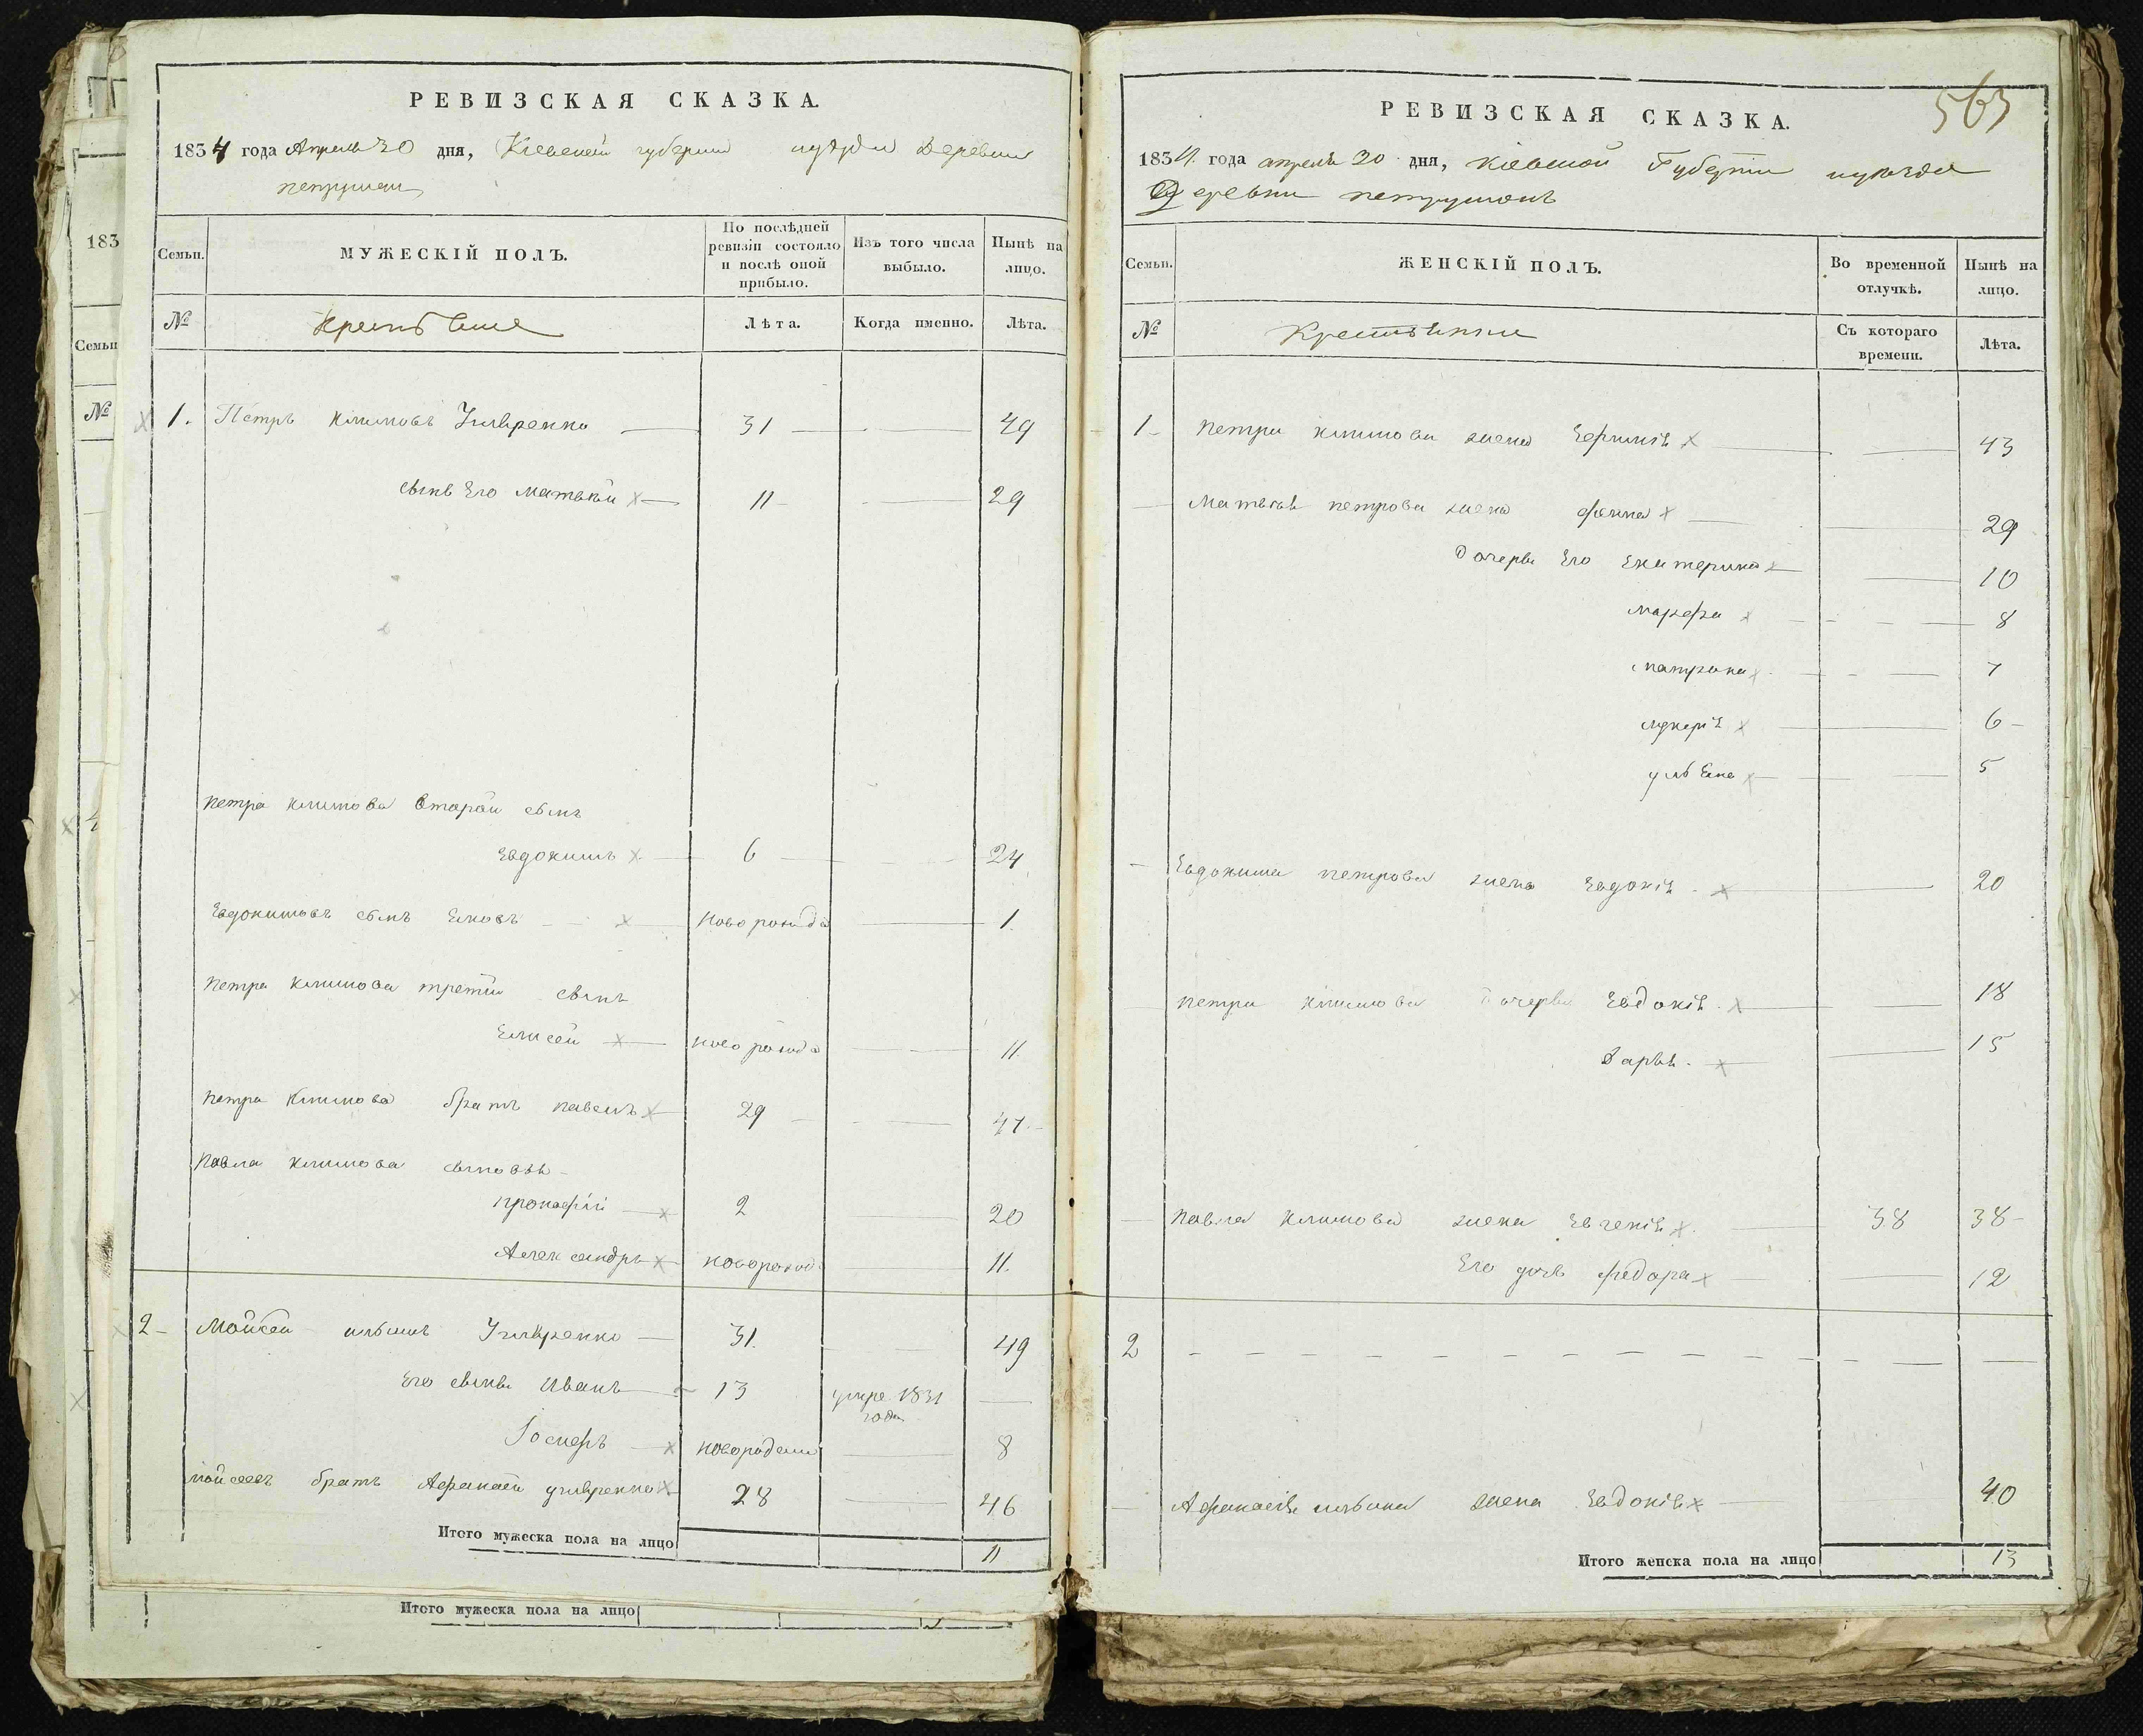 РЕВИЗСКАЯ СКАЗКА.
1834 года Апреля 30 дня, Кіевской губерніи и уѣзда Деревни
петрушокъ
Семьи.
МУЖЕСКІЙ ПОЛЪ.
По послѣдней ревизіи состояло и послѣ оной прибыло.
Изъ того числа выбыло.
Нынѣ на лицо.
№
Крестьяне
Лѣта.
Когда именно.
Лѣта.
1. Петръ климовъ 31 49
сынъ Его матвѣй 11 29
петра климова вторый сынъ
Евдокимъ 6 24
Евдокимовъ сынъ Яковъ новорожд 1.
петра климова третій сынъ
Елисей новорожд 11
петра климова братъ павелъ 29 47.
павла климова сыновья
прокофій 2 20
Александръ новорожд 11.
2 Мойсей ильинъ 31. 49
Его сынъ иванъ 13 умре 1831
года
Іосифъ новорожден 8
мойсеевъ братъ Афанасій 28 46
Итого мужеска пола на лицо 11
Итого мужеска пола на лицо
183
Семьи
№
563
РЕВИЗСКАЯ СКАЗКА.
1834. года апреля 30 дня, кіевской Губерніи и уѣзда
Деревни петрушокъ
Семьи.
ЖЕНСКІЙ ПОЛЪ.
Во временной отлучкѣ.
Нынѣ на лицо.
№
Крестьянки
Съ котораго времени.
Лѣта.
1 петра климова жена 43
Матвея петрова жена фекла 29
дочери Его Екатерина 10
марфа 8
матрона 7
лукерія 6
ульяна 5
Евдокима петрова жена Евдокія 20
петра климова дочери Евдокія 18
Дарья 15
павла климова жена Евгенія 38 38
Его дочь федора 12
2
Афанасія ильина жена Евдокія 40
Итого женска пола на лицо 13